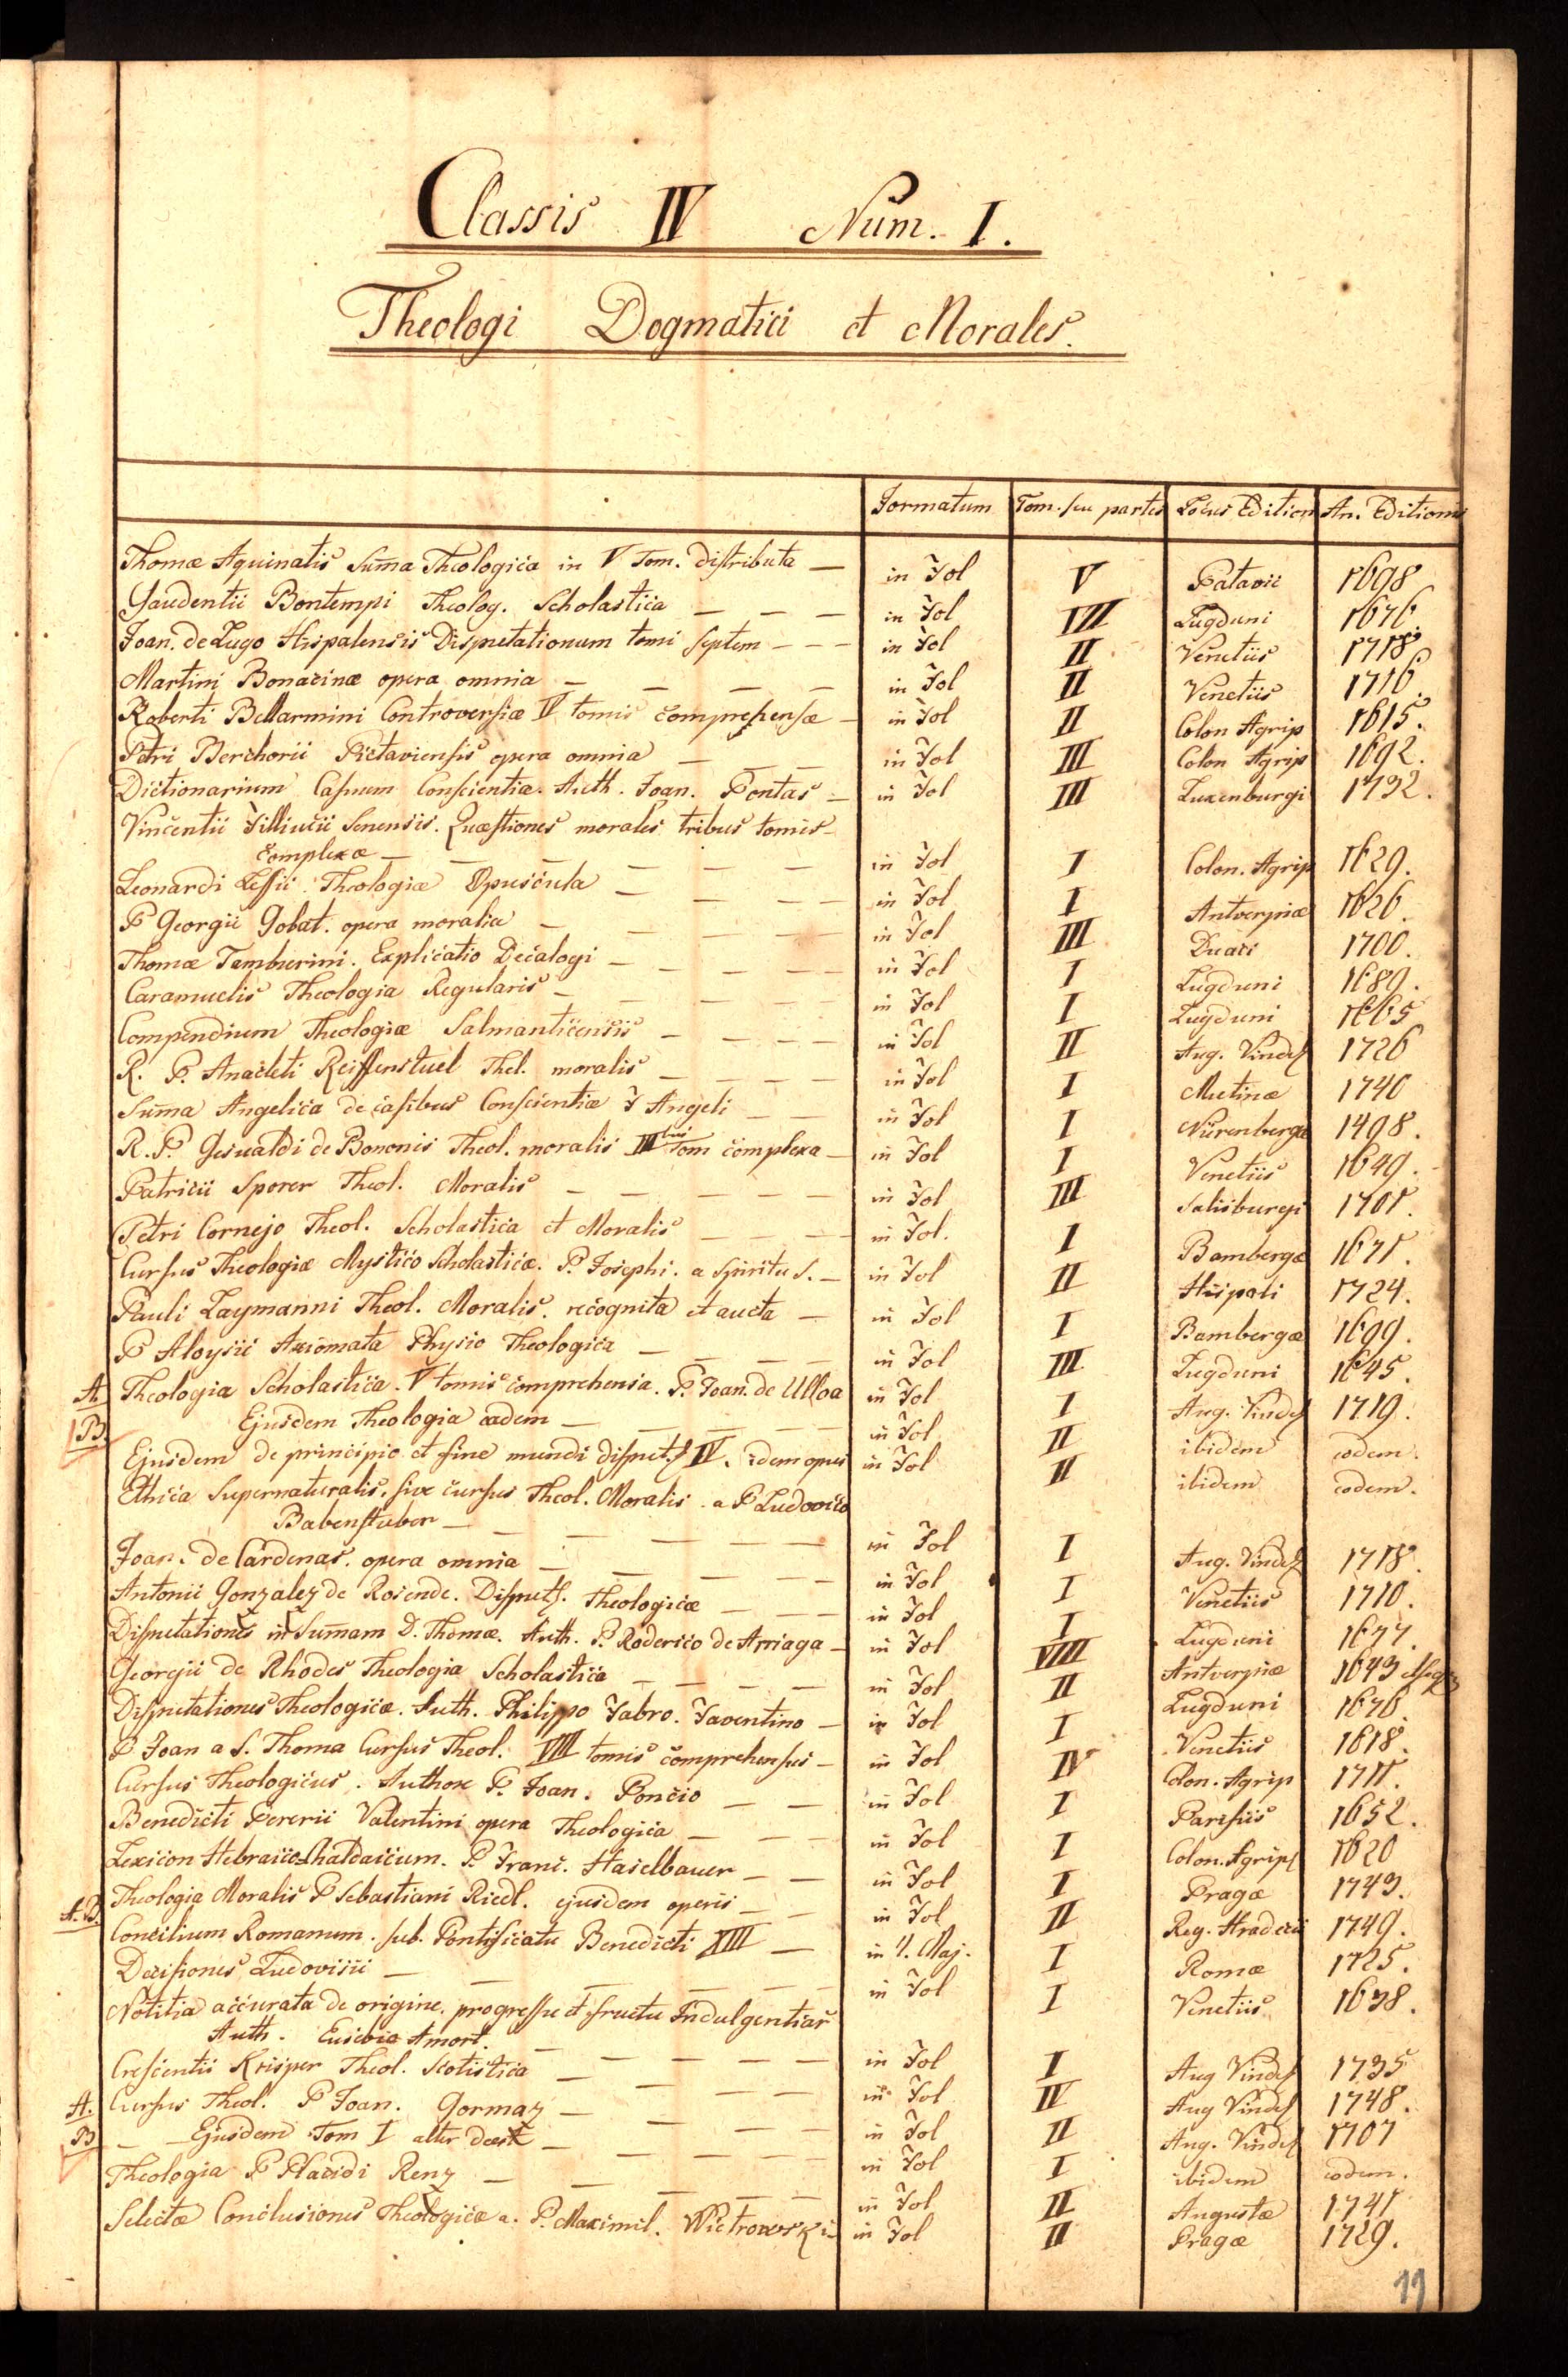 Classis IV Num. I.
Theologi Dogmatici et Morales.
Formatum Tom. seu partes Locus Edition An. Editionis
Thomæ Aquinatis Sum̄a Theologica in V Tom. distributa — in Fol V Patavii 1698
Gaudentii Bontempi Theolog. Scholastica — — — in Fol VII Lugduni 1676.
Joan. de Lugo Hispalensis Disputationum tomi septem - - - in Fol II Venetiis 1718
Martini Bonacinæ opera omnia — — — — in Fol II Venetiis 1716.
Roberti Bellarmini Controversiæ IV tomis comprehensæ — in Fol II Colon Agrip 1615.
Petri Berchorii Pictaviensis opera omnia — — — in Fol III Colon Agrip 1692.
Dictionarium Casuum Conscientiæ. Auth. Joan. Pontas — in Fol III Luxenburgi 1732.
Vincentii Filliucii Senensis. Quæstiones morales tribus tomis
complexæ — — — — — — in Fol I Colon. Agrip 1629.
Leonardi Lessii Theologiæ Opuscula — — — — in Fol I Antverpiæ 1626.
P Georgii Gobat. opera moralia — — — — in Fol III Duaci 1700.
Thomæ Tamburini. Explicatio Decalogi — — — — in Fol I Lugduni 1689.
Caramuelis Theologia Regularis — — — — in Fol I Lugduni 1665
Compendium Theologiæ Salmanticensis — — — — in Fol II Aug. Vindel 1726
R. P. Anacleti Reiffenstuel Thel. moralis — — — — in Fol I Mutinæ 1740
Sum̄a Angelica de casibus Conscientiæ F Angeli — — in Fol I Nürenbergæ 1498.
R. P. Gesualdi de Bononis Theol. moralis IIIbus Tom complexa — in Fol I Venetiis 1649.
Patricii Sporer Theol. Moralis — — — — — in Fol III Salisburgi 1701.
Petri Cornejo Theol. Scholastica et Moralis — — — in Fol. I Bambergæ 1671.
Cursus Theologiæ Mystico Scholasticæ. P. Josephi. a Spiritu S. — in Fol II Hispali 1724.
Pauli Laymanni Theol. Moralis. recognita et aucta — in Fol I Bambergæ 1699.
P Aloysii Axiomata Physio Theologica — — — — in Fol III Lugduni 1645.
A. Theologia Scholastica. V tomis comprehensa. P. Joan. de Ulloa in Fol I Aug. Vindel 1719.
B. Ejusdem Theologia eadem — — — — in Fol II ibidem eodem.
Ejusdem de principio et fine mundi disput. IV. idem opus in Fol II ibidem eodem.
Ethica Supernaturalis. sive cursus Theol. Moralis. a P Ludovico
Babenstuber — — — — — in Fol I Aug. Vindel 1718.
Joan. de Cardenas. opera omnia — — — — in Fol I Venetiis 1710.
Antonii Gonzalez de Rosende. Disput. Theologicæ — — — in Fol I Lugduni 1677.
Disputationes in Sum̄am D. Thomæ. Auth. P. Roderico de Arriaga — in Fol VIII Antverpiæ 1643
Georgii de Rhodes Theologia Scholastica — — — — in Fol II Lugduni 1676.
Disputationes Theologicæ. Auth. Philippo Fabro. Faventino — in Fol I Venetiis 1618.
P Joan a S. Thoma Cursus Theol. VIII tomis comprehensus — in Fol IV Colon. Agrip 1711.
Cursus Theologicus. Authore P. Joan. Poncio — — in Fol I Parisiis 1652.
Benedicti Pererii Valentini opera Theologica — — — in Fol I Colon. Agrip 1620
Lexicon Hebraico Chaldaicum. P. Franc. Haselbauer — — in Fol I Pragæ 1743.
A.B. Theologia Moralis P Sebastiani Riedl. ejusdem operis — — in Fol II Reg. Hradecii 1749.
Concilium Romanum. sub. Pontificatu Benedicti XIII — in 4. Maj. I Romæ 1725.
Decisiones Ludovisii — — — — — in Fol I Venetiis 1638.
Notitia accurata de origine. progressu et fructu Indulgentiar
Auth. Eusebio Amort. — — — — — in Fol I Aug Vindel 1735
Crescentii Krisper Theol. Scotistica — — — — in Fol IV Aug Vindel 1748.
A. Cursus Theol. P Joan. Gormaz — — — — in Fol II Aug. Vindel 1707
B — Ejusdem Tom I alter deest — — — — in Fol I ibidem eodem.
Theologia P Placidi Renz — — — — in Fol II Augustæ 1741
Selectæ Conclusiones Theologicæ a. P. Maximil. Wietrowski — in Fol II Pragæ 1729.
19